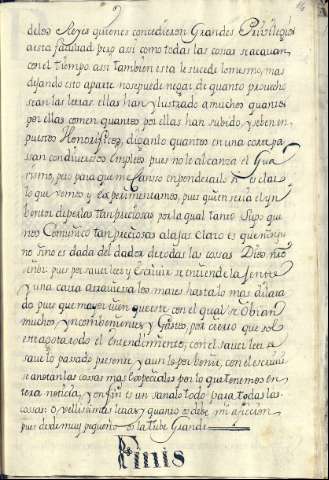 delos Reyes quienes concedieron Grandes Privilegios
aesta facultad pero asi como todas las cosas se acavan
con el tiempo assi tambien esta le sucede lo mesmo, mas
dejando esto aparte nosepuede negar, de quanto provecho
sean las letras ellas han ylustrado amuchos quantos
por ellas comen quantos por ellas han subido, y seben en
puestos Honorificos, diganlo quantos en una corte pa
ssan con diversos Empleos pues no le alcanza el Gua
rismo, pero para que me Canso en ponderarlo si es claro
lo que vemos y experimentamos, pues quien seria el yn
bentor de perlas tan preciosas por la qual tanto Supo qui
nos Comunico tan preciosas alajas Claro es que
no sino es dada del dador de todas las cossas Dios nro
señor pues por saver leer y Escrivir se entiende la jente
y una carta atraviessa los mares hasta lo mas dilatado
pues que mayor bien que este con el qual se Obian
muchos ynconbenientes y Gastos, por cierto que sol
entagota todo el entendimiento, con el saver leer se
save lo pasado presente y aun lo por benir, con el escrivir
se anotan las cossas mas Expeciales por lo que tenemos en
tera noticia, y en fin es un sanalo todo para todas las
cossas: o vellissimas letras, quanto os debe mi aficion
pues desde muy pequeño os la tube Grande
Finis